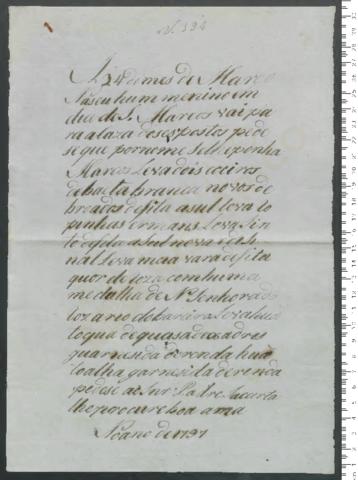 N. 394
A 24 do mes de Março
Nasceu hum menino em
dia de S. Marcos vai pa
ra a caza dos espostos pede
se que por nome se lhe ponha
Marcos Leva dois coeiros
de baeta branca novos de
breados de fita asul leva to
pinhas ermans Leva Sin
to de fita asul nova e de si
nal Leva meia vara de fita
quor de roza com huma
medalha de N. Senhora do
Leva huã
toqua de quasa de xadres
guarnesida de renda huã
toalha garnesida de renda
pedese ao Snr Padre Sacarta
lhe procure boa ama
Se ano de 1797